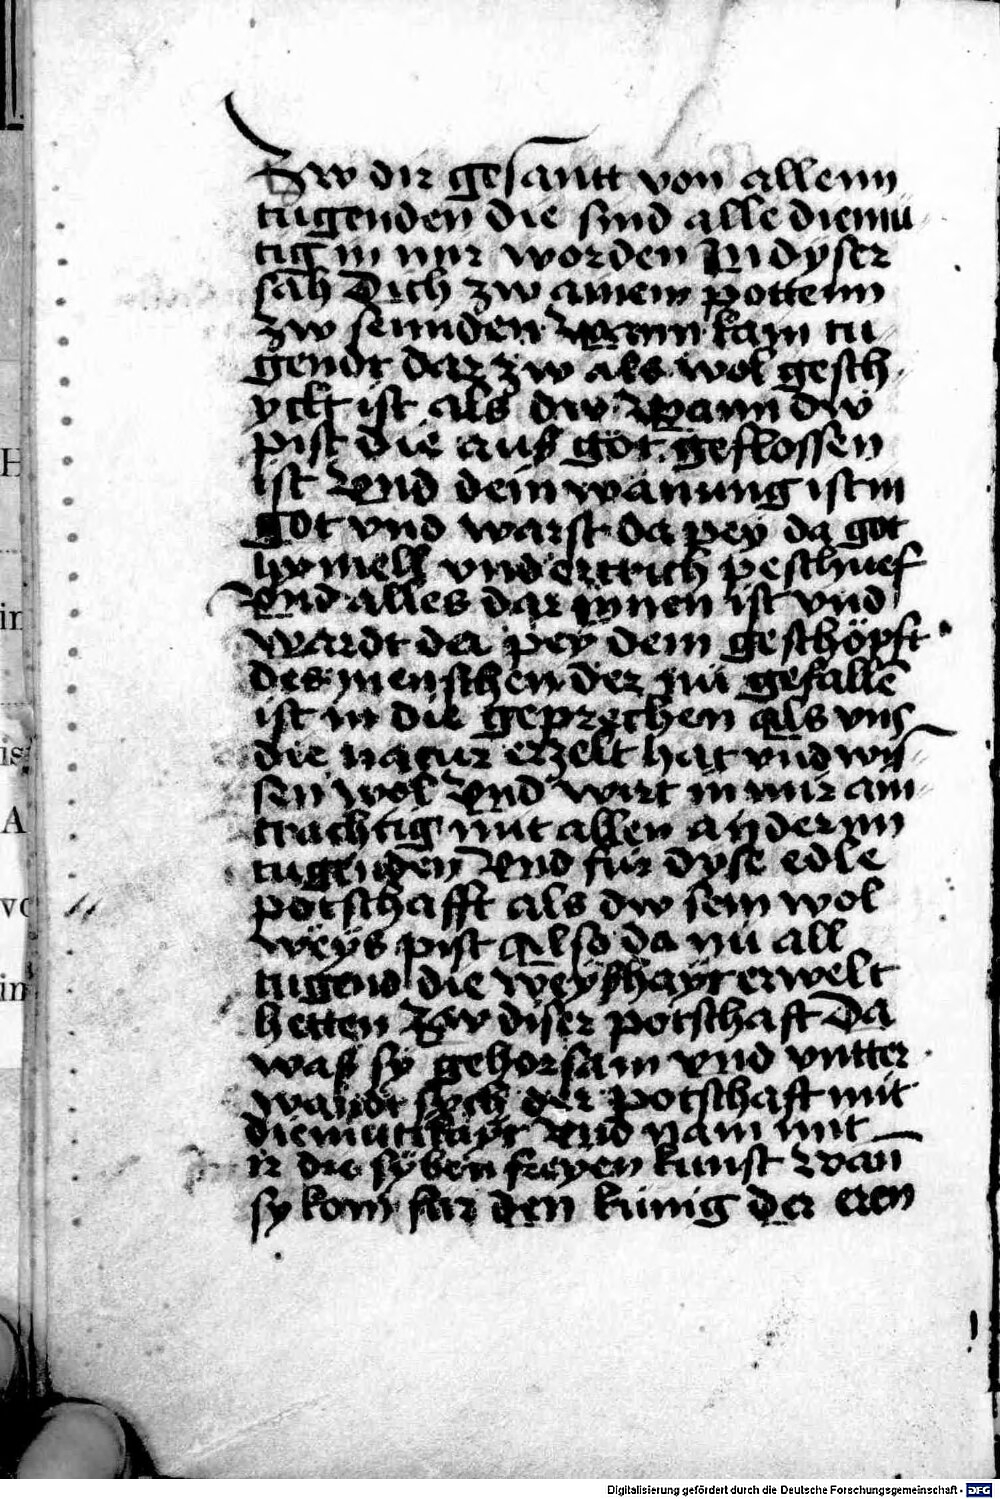 Zw dir gesantt von allenn
tugenden die sind alle diemu
tig in mir worden Jn dyser
sach Dich zw ainem pottenn
zw sennden Wann kain tu
gendt dar zw als wol gesch
yckt ist als dw Wann dw
pist die aus got geflossen
ist Vnd dein wanung ist in
got vnd warst da pey da got
hymell vnd ertrich peschuef
Vnd alles dar jnnen ist vnd
wardt da pey dem geschöpft
des menschen der nu gefallē
ist in die geprechen als vns
die natur erzelt hat vnd wis
sen wol Vnd wirt in mir ain
trachtig mit allen andernn
tugenden Vnd für dyse edle
potschafft als dw sein wol
weys pist Also da nu all
tugend die weyshayt erwelt
hetten Zw diser potschaft Da
was sy gehorsam vnd vntter
wandt sych der potschaft mit
diemutikayt Vnd nam mit
ir die syben freyen kunst Wan̄
sy kom für den künig der eren
Digitalisierung gefördert durch die Deutsche Forschungsgemeinschaft - DFG